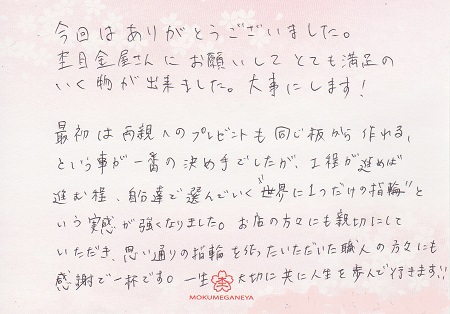 今回はありがとうございました。
杢目金屋さんにお願いしてとても満足の
いく物が出来ました。大事にします!
最初は両親へのプレゼントも同じ板から作れる、
という事が一番の決め手でしたが、工程が進めば
進む程、自分達で選んでいく"世界に1つだけの指輪"と
いう実感が強くなりました。お店の方々にも親切にして
いただき、思い通りの指輪を作っていただいた職人の方々にも
感謝で一杯です。一生大切に共に人生を歩んで行きます!!
MOKUMEGANEYA